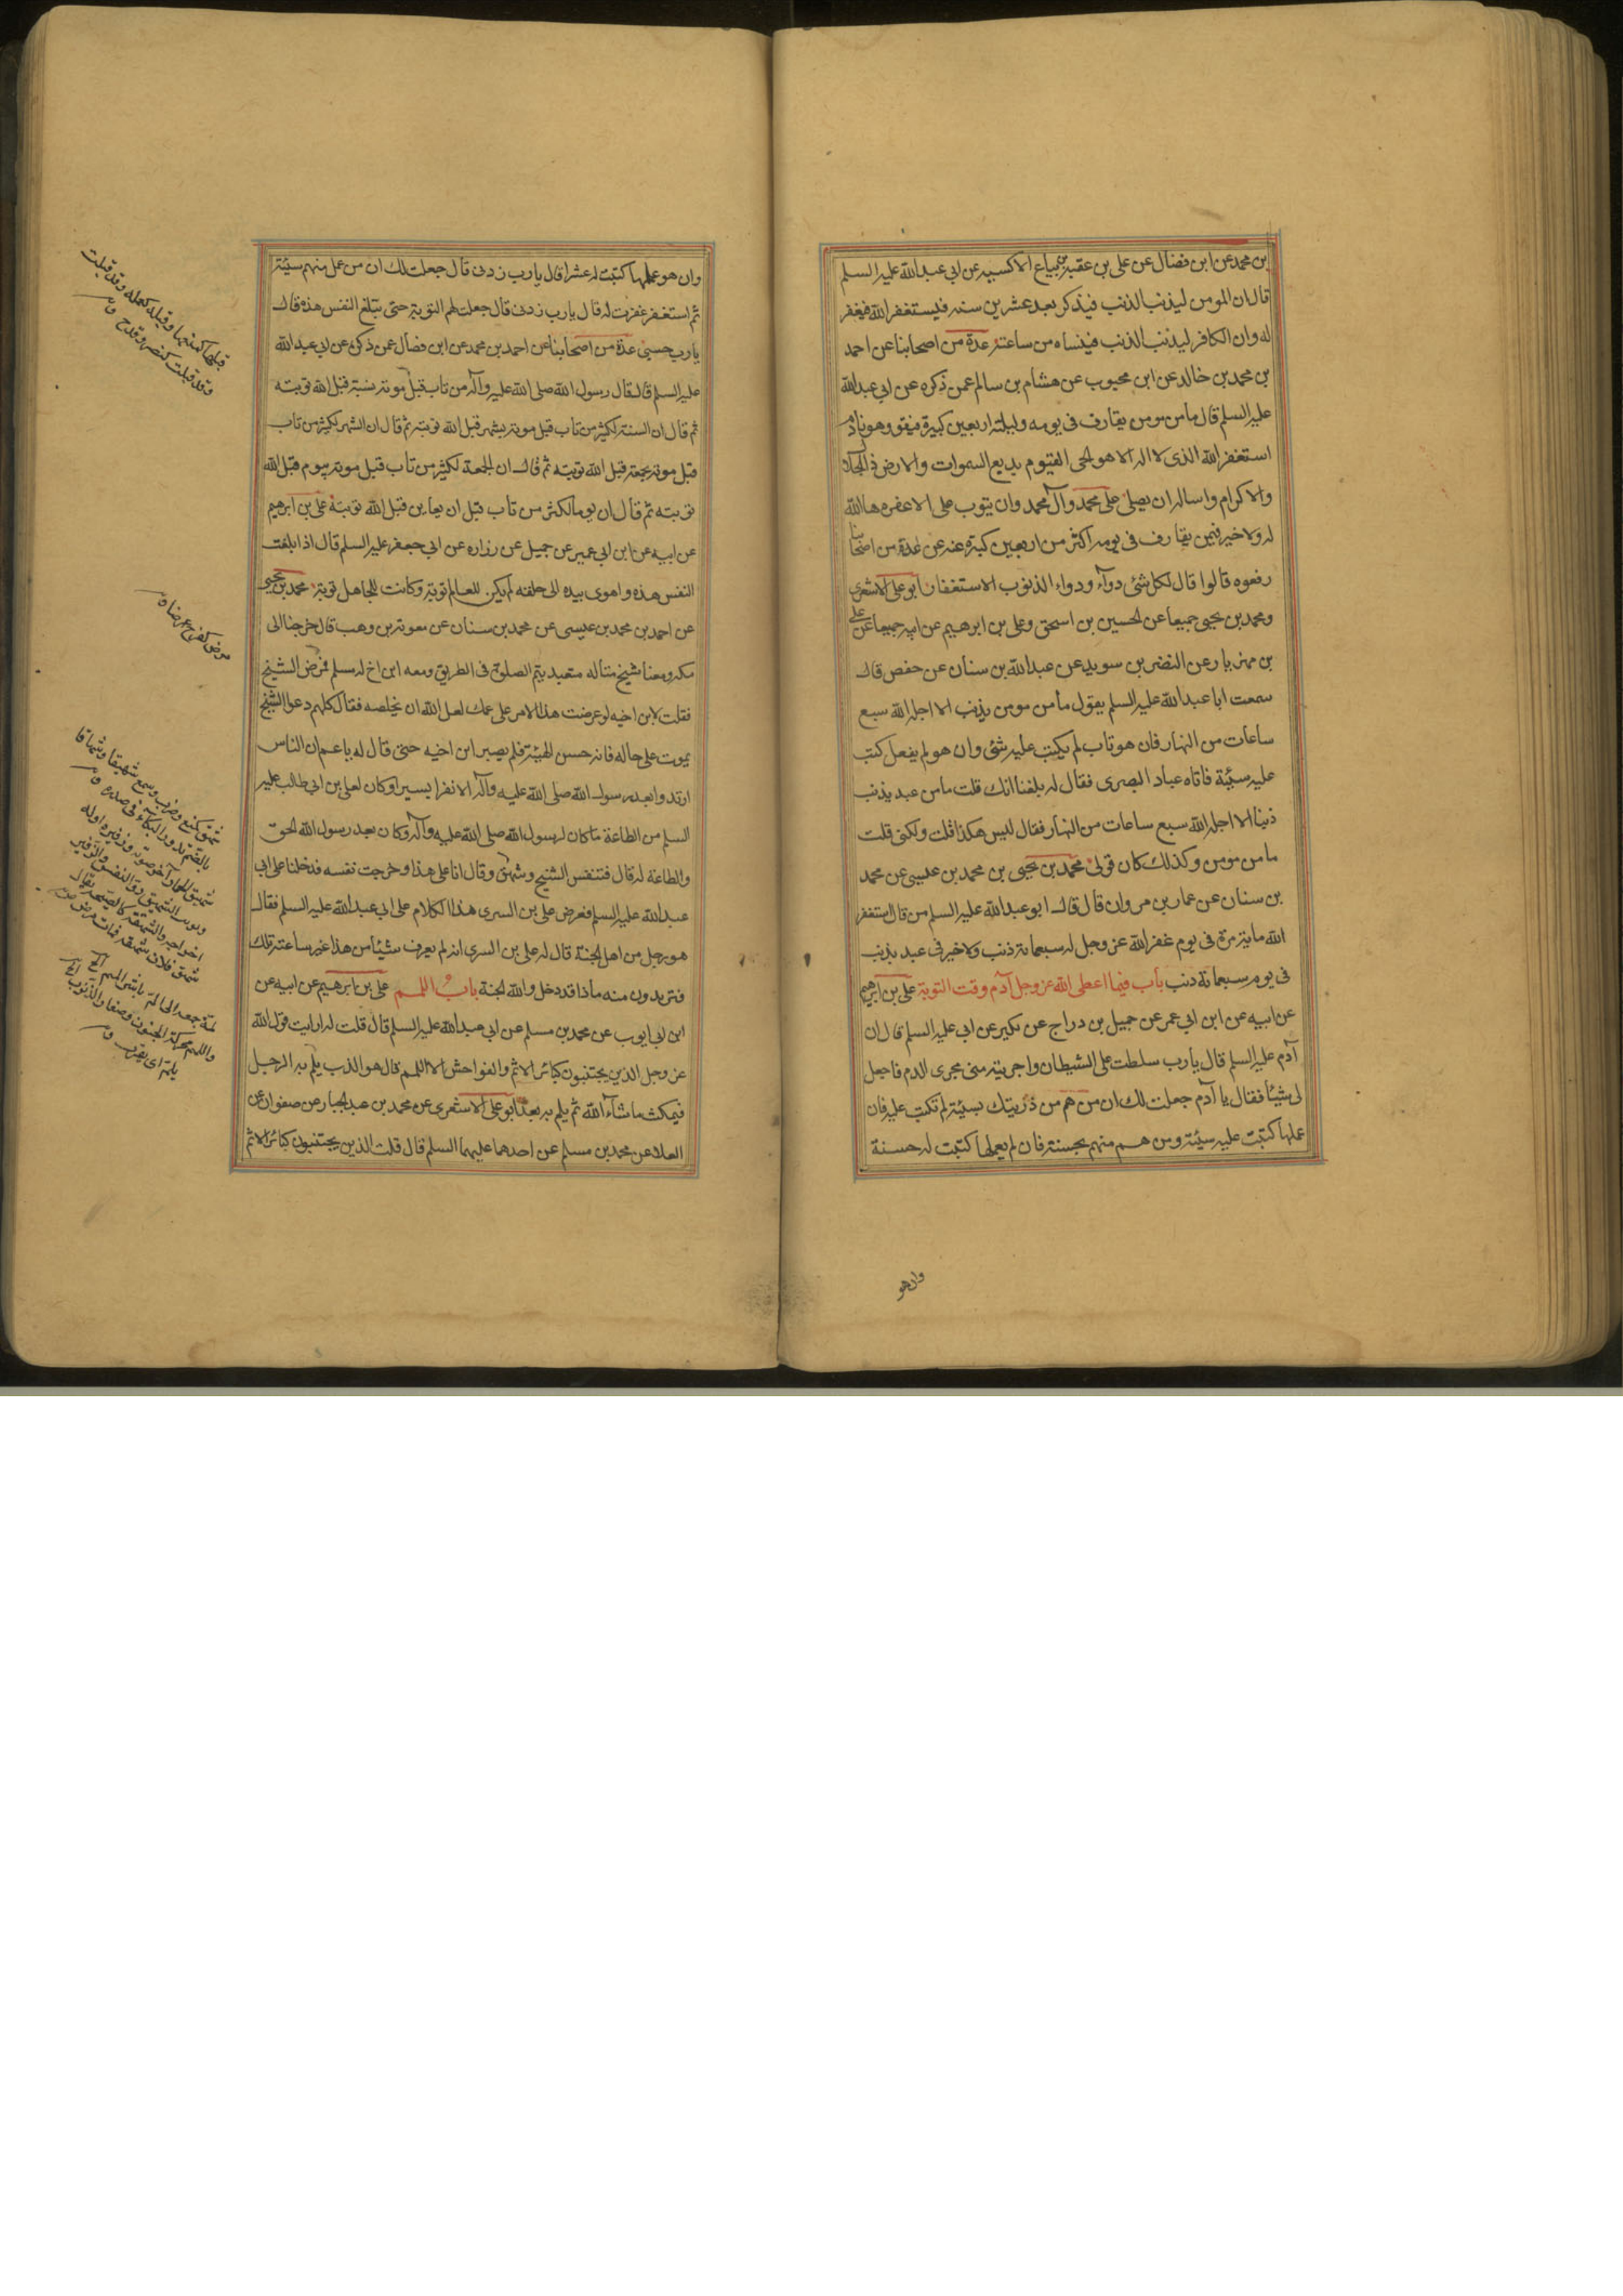 بن محمد عن ابن فضال عن علي بن عقبة بياع الاكسية عن ابي عبدالله عليه السلم
قال ان المومن ليذنب الذنب فيذكر بعد عشرين سنة فيستغفر الله فيغفر
له وان الكافر ليذنب الذنب فينساه من ساعته عدة من اصحابنا عن احمد
بن محمد بن خالد عن ابن محبوب عن هشام بن سالم عمن ذكره عن ابي عبدالله
عليه السلم قال ما من مومن يقارف في يومه وليلته اربعين كبيرة فيقول وهو نادم
استغفر الله الذي لا اله الا هو الحي القيوم بديع السموات والارض ذالجلال
والاكرام واساله ان يصلي على محمد وآل محمد وان يتوب علي الا غفرها الله
له ولا خير فيمن يقارف في يومه اكثر من اربعين كبيرة عنه عن عدة من اصحابنا
رفعوه قالوا قال لكل شئ دوآء ودواء الذنوب الاستغفار ابو علي الاشعري
ومحمد بن يحيى جميعا عن الحسين بن اسحق وعلي بن ابرهيم عن ابيه جميعا عن علي
بن مهزيار عن النضر بن سويد عن عبدالله بن سنان عن حفص قال
سمعت ابا عبدالله عليه السلم يقول ما من مومن يذنب الا اجله الله سبع
ساعات من النهار فان هو تاب لم يكتب عليه شئ وان هو لم يفعل كتب
عليه سيئة فاتاه عباد البصري فقال له بلغنا انك قلت ما من عبد يذنب
ذنبا الا اجله الله سبع ساعات من النهار فقال ليس هكذا قلت ولكني قلت
ما من مومن وكذلك كان قولي محمد بن يحيى بن محمد بن عيسى عن محمد
بن سنان عن عمار بن مروان قال قال ابو عبدالله عليه السلم من قال استغفر
الله مائة مرة في يوم غفر الله عز وجل له سبعمائة ذنب ولا خير في عبد يذنب
في يوم سبعمائة ذنب باب فيما اعطى الله عز وجل آدم وقت التوبة علي بن ابرهيم
عن ابيه عن ابن ابي عمر عن جميل بن دراج عن بكير عن ابي عليه السلم قال ان
آدم عليه السلم قال يا رب سلطت علي الشيطان واجريته مني مجرى الدم فاجعل
لي شيئا فقال يا آدم جعلت لك ان من هم من ذريتك بسيئة لم تكتب عليه فان
عملها كتبت عليه سيئة ومن هم منهم بحسنة فان لم يعملها كتبت له حسنة
وان هو
وان هو عملها كتبت له عشرا قال يا رب زدني قال جعلت لك ان من عمل منهم سيئة
ثم استغفر غفرت له قال يا رب زدني قال جعلت لهم التوبة حتى يبتلغ النفس هذه قال
يا رب حسبي عدة من اصحابنا عن احمد بن محمد عن ابن فضال عمن ذكره عن ابي عبدالله
عليه السلم قال قال رسول الله صلى الله عليه وآله من تاب قبل موته بسنة قبل الله توبته
ثم قال ان السنة لكثيرة من تاب قبل موته بشهر قبل الله توبته ثم قال ان الشهر لكثير من تاب
قبل موته بجمعة قبل الله توبته ثم قال ان الجمعة لكثير من تاب قبل موته بيوم قبل الله
توبته ثم قال ان يوما لكثير من تاب قبل ان يعاين قبل الله توبته علي بن ابرهيم
عن ابيه عن ابن ابي عمير عن جميل عن زراره عن ابي جعفر عليه السلم قال اذا بلغت
النفس هذه واهوى بيده الى حلقه لم يكن للعالم توبة وكانت للجاهل توبة محمد بن يحيى
عن احمد بن محمد بن عيسى عن محمد بن سنان عن معوية بن وهب قال خرجنا الى
مكه ومعنا شيخ متأله متعبد يتم الصلوة في الطريق ومعه ابن اخ له مسلم فمرض الشيخ
فقلت لابن اخيه لو عرضت هذا الامر على عمك لعل الله ان يخلصه فقال كلهم دعوا الشيخ
يموت على حاله فانه حسن الهيئة فلم يصبر ابن اخيه حتى قال له يا عم ان الناس
ارتدوا بعد رسول الله صلى الله عليه وآله الا نفرا يسيرا وكان لعلي بن ابي طالب عليه
السلم من الطاعة ما كان لرسول الله صلى الله عليه وآله وكان بعد رسول الله الحق
والطاعة له قال فتنفس الشيخ وشهق وقال انا على هذا وخرجت نفسه فدخلنا على ابي
عبدالله عليه السلم فعرض علي بن السري هذا الكلام على ابي عبدالله عليه السلم فقال
هو رجل من اهل الجنة قال له علي بن السري انه لم يعرف شيئا من هذا غير ساعته تلك
فتريدون منه ماذا قد دخل والله الجنة باب اللمم علي بن ابرهيم عن ابيه عن
ابن ابي ايوب عن محمد بن مسلم عن ابي عبدالله عليه السلم قال قلت له ارايت قول الله
عز وجل الذين يجتنبون كبائر الاثم والفواحش الا اللمم قال هو الذنب يلم به الرجل
فيمكث ما شاء الله ثم يلم به بعد ابو علي الاشعري عن محمد بن عبدالجبار عن صفوان عن
العلا عن محمد بن مسلم عن احدهما عليهما السلم قال قلت الذين يجتنبون كبائر الاثم